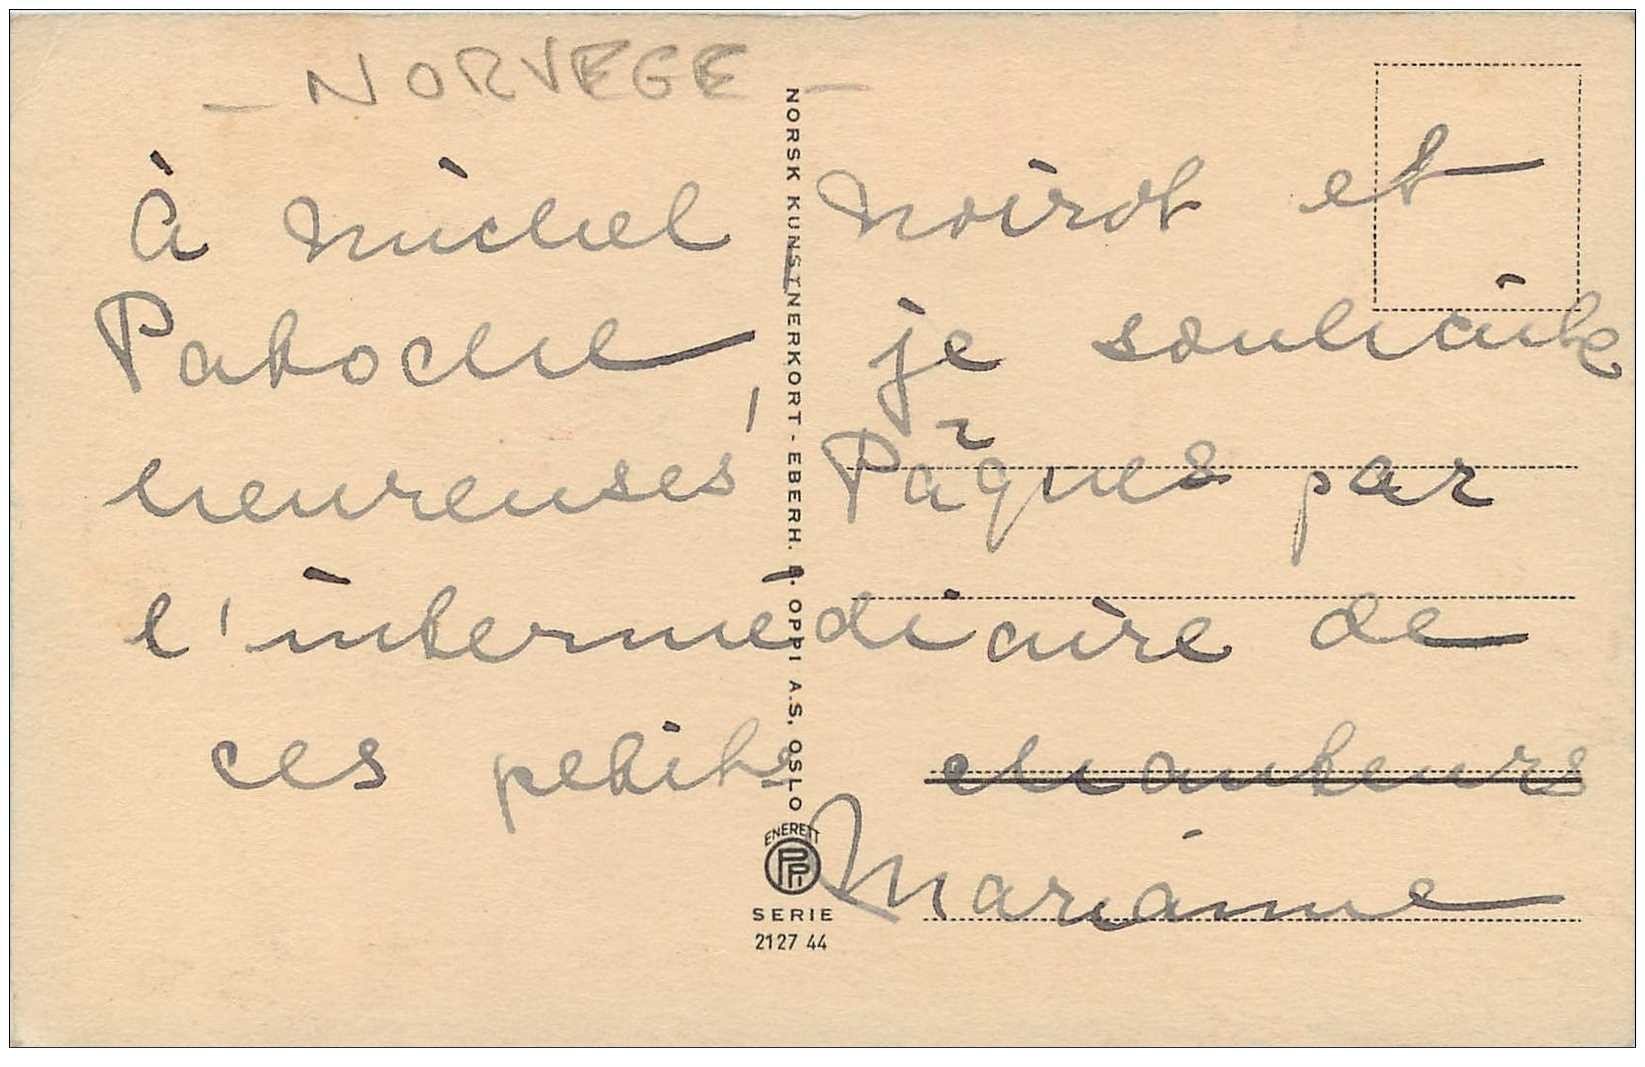 - NORVEGE -
À Michel, Noirot et
Patoche, je souhaite
heureuses Pâques par
l'intermédiaire de
ces petits chanteurs
Marianne
NORSK KUNSTNERKORT - EBERH. B. OPPI A.S, OSLO
ENERETT
PPI
SERIE
2127 44